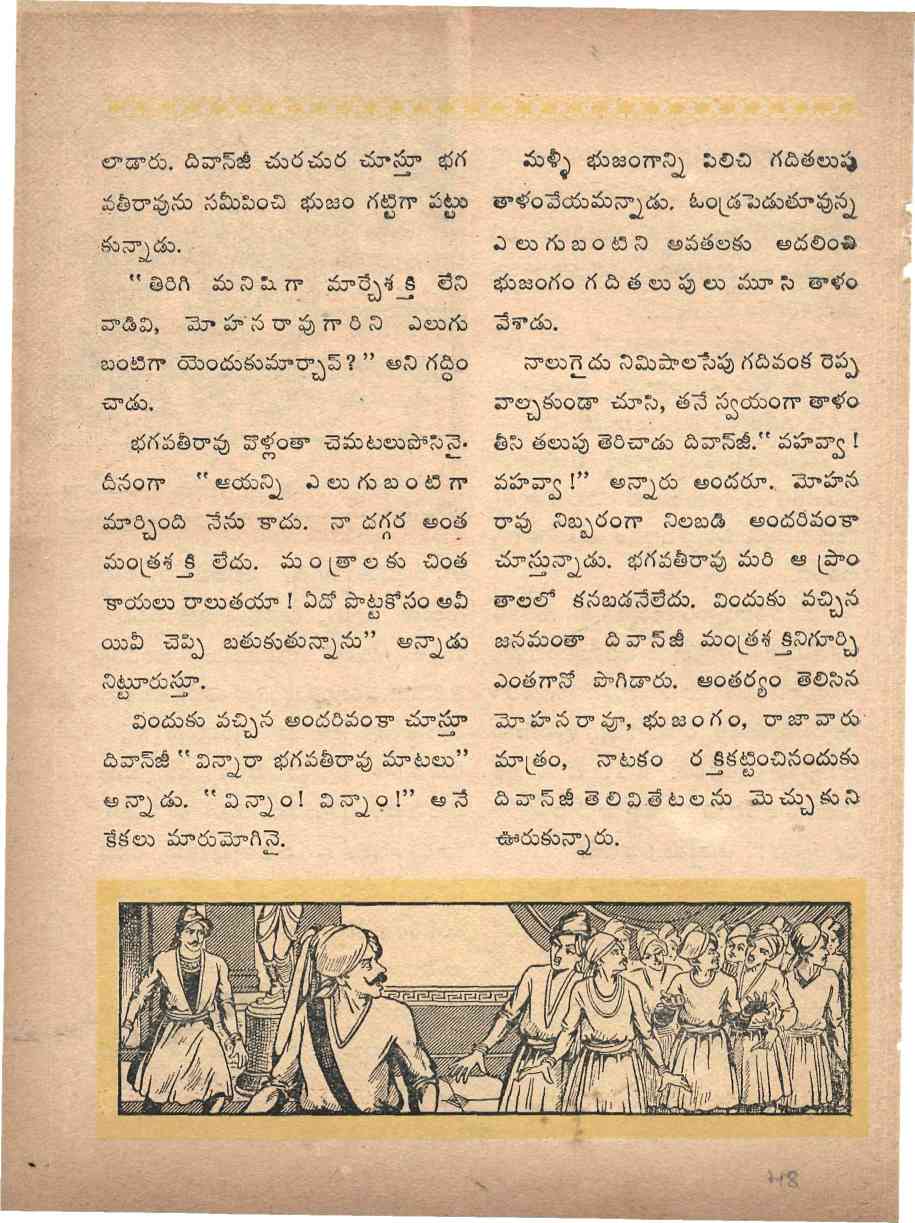 లాడారు. దివాన్‌జీ చురచుర చూస్తూ భగ
వతీరావును సమీపించి భుజం గట్టిగా పట్టు
కున్నాడు.
“తిరిగి మనిషిగా మార్చేశక్తి లేని
వాడివి, మోహనరావుగారిని ఎలుగు
బంటిగా యెందుకుమార్చావ్?” అని గద్దిం
చాడు.
భగవతీరావు వొళ్లంతా చెమటలుపోసినై.
దీనంగా “ఆయన్ని ఎలుగుబంటిగా
మార్చింది నేను కాదు. నా దగ్గర అంత
మంత్రశక్తి లేదు. మంత్రాలకు చింత
కాయలు రాలుతయా! ఏదో పొట్టకోసం అవీ
యివీ చెప్పి బతుకుతున్నాను” అన్నాడు
నిట్టూరుస్తూ.
విందుకు వచ్చిన అందరివంకా చూస్తూ
దివాన్‌జీ “విన్నారా భగవతీరావు మాటలు”
అన్నాడు. “విన్నాం! విన్నాం!” అనే
కేకలు మారుమోగినై.
మళ్ళీ భుజంగాన్ని పిలిచి గదితలుపు
తాళంవేయమన్నాడు. ఓండ్రపెడుతూవున్న
ఎలుగుబంటిని అవతలకు అదలించి
భుజంగం గదితలుపులు మూసి తాళం
వేశాడు.
నాలుగైదు నిమిషాలసేపు గదివంక రెప్ప
వాల్చకుండా చూసి, తనే స్వయంగా తాళం
తీసి తలుపు తెరిచాడు దివాన్‌జీ. “వహవ్వా!
వహవ్వా!” అన్నారు అందరూ. మోహన
రావు నిబ్బరంగా నిలబడి అందరివంకా
చూస్తున్నాడు. భగవతీరావు మరి ఆ ప్రాం
తాలలో కనబడనేలేదు. విందుకు వచ్చిన
జనమంతా దివాన్‌జీ మంత్రశక్తినిగూర్చి
ఎంతగానో పొగిడారు. ఆంతర్యం తెలిసిన
మోహనరావూ, భుజంగం, రాజావారు
మాత్రం, నాటకం రక్తికట్టించినందుకు
దివాన్‌జీ తెలివితేటలను మెచ్చుకుని
ఊరుకున్నారు.